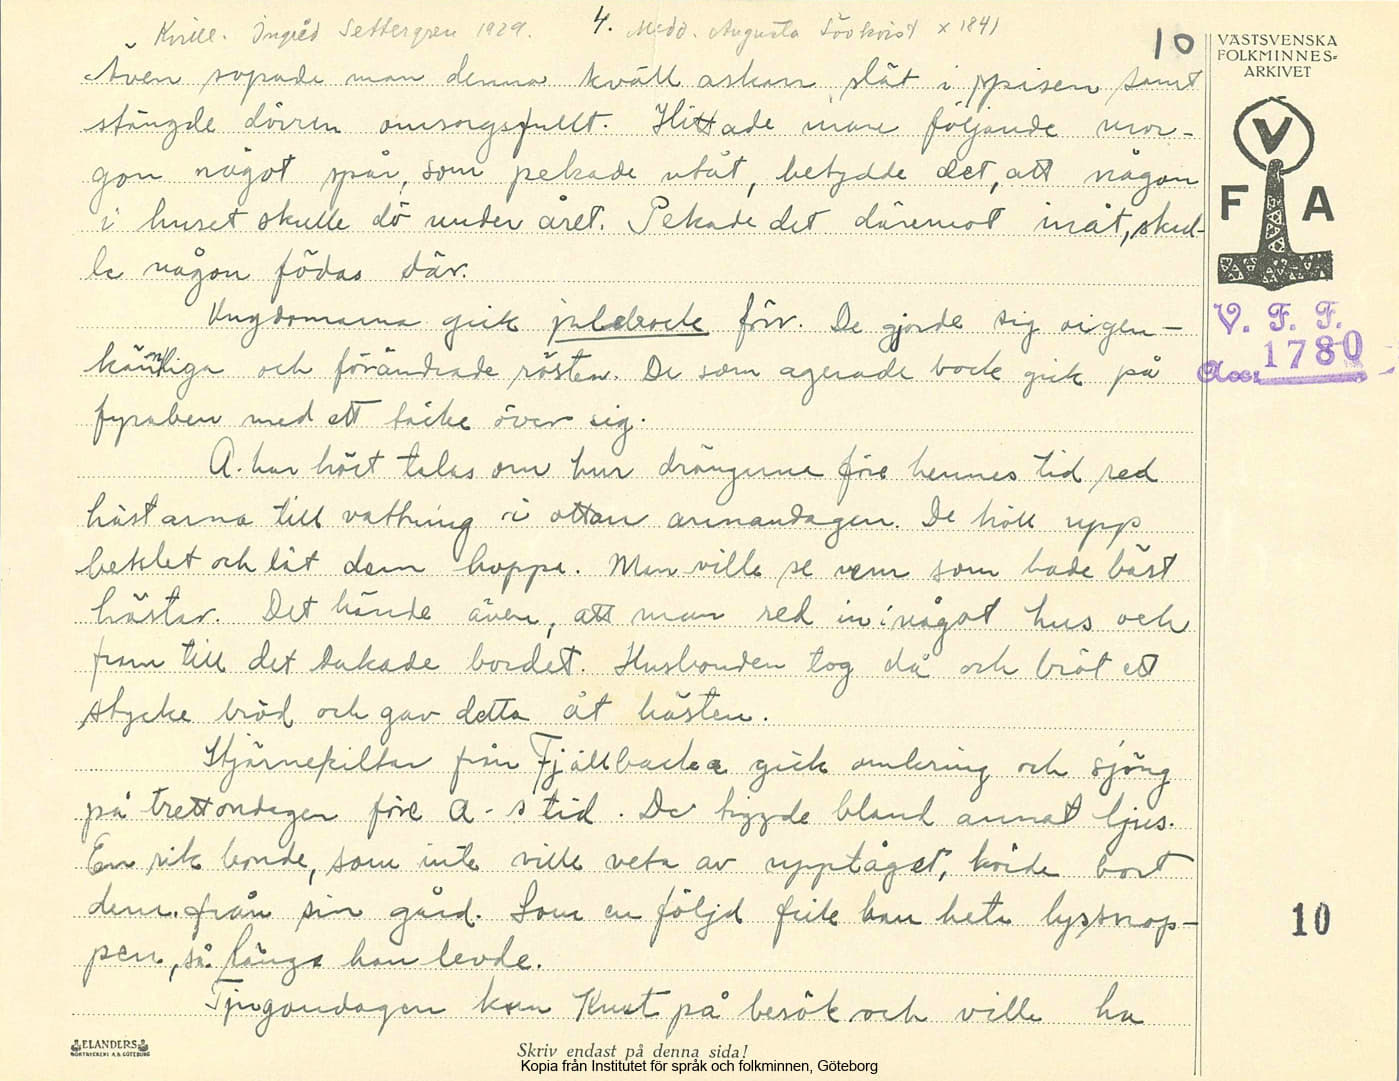 Kville. Ingrid Settergren 1929. 4. Medd. Augusta Lövkvist x 1841
10
VÄSTSVENSKA
FOLKMINNES-
ARKIVET
Även sopade man denna kväll askan slät i spisen samt
stängde dörren omsorgsfullt. Hittade man följande mor-
gon något spår, som pekade utåt, betydde det, att någon
i huset skulle dö under året. Pekade det däremot inåt, skul-
le någon födas där.
Ungdomarna gick julebock förr. De gjorde sig oigen-
kännliga och förändrade rösten. De som agerade bock gick på
fyraben med ett täcke över sig.
A. har hört talas om hur drängarna före hennes tid red
hästarna till vattning i ottan annandagen. De höll upp
betslet och lät dem hoppa. Man ville se vem som hade bäst
hästar. Det hände även, att man red in i något hus och
fram till det dukade bordet. Husbonden tog då och bröt ett
stycke bröd och gav detta åt hästen.
Stjärnekiltar från Fjällbacka gick omkring och sjöng
på trettondagen före A-s tid. De tiggde bland annat ljus.
En rik bonde, som inte ville veta av upptåget, körde bort
dem från sin gård. Som en följd fick han heta lyssnop-
pen, så länge han levde.
Tjugondagen kom Knut på besök och ville ha
V
F A
V. F. F.
Acc. 1780
10
ELANDERS
BOKTRYCKERI A.B. GÖTEBORG
Skriv endast på denna sida!
Kopia från Institutet för språk och folkminnen, Göteborg